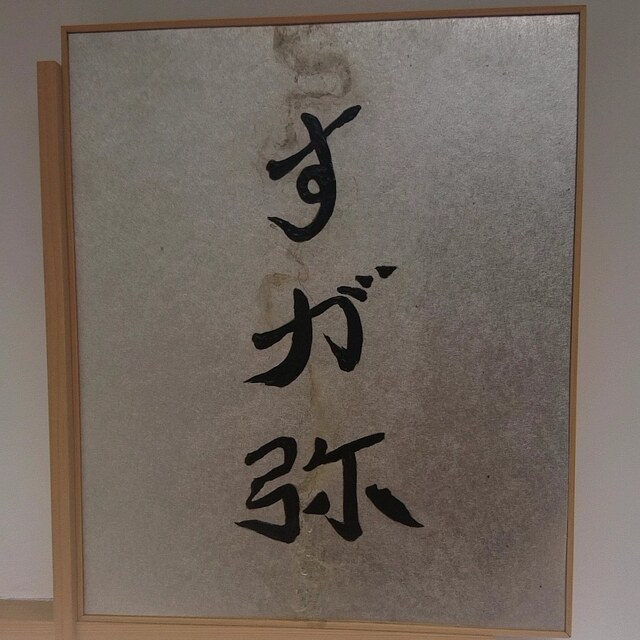 すガ弥